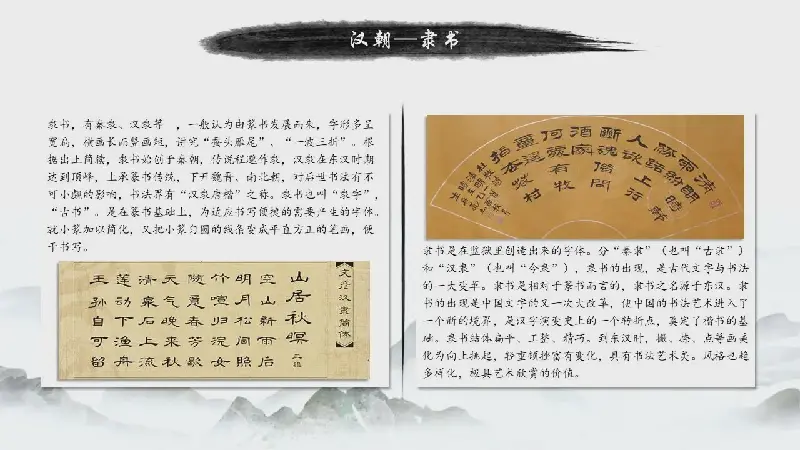 汉朝—隶书
隶书，有秦隶、汉隶等 ，一般认为由篆书发展而来，字形多呈
宽扁，横画长而竖画短，讲究“蚕头雁尾”、“一波三折”。根
据出土简牍，隶书始创于秦朝，传说程邈作隶，汉隶在东汉时期
达到顶峰，上承篆书传统，下开魏晋、南北朝，对后世书法有不
可小觑的影响，书法界有“汉隶唐楷”之称。隶书也叫“隶字”，
“古书”。是在篆书基础上，为适应书写便捷的需要产生的字体。
就小篆加以简化，又把小篆匀圆的线条变成平直方正的笔画，便
于书写。
文鼎汉隶简体
山居秋暝
王维
空山新雨后
明月松间照
竹喧归浣女
随意春芳歇
天气晚来秋
清泉石上流
莲动下渔舟
王孙自可留
清明時節
雨紛紛
路上行
人欲
斷魂借問
酒家
何處有牧
童遙
指杏花村
隶书是在监狱里创造出来的字体。分“秦隶”（也叫“古隶”）
和“汉隶”（也叫“今隶”），隶书的出现，是古代文字与书法
的一大变革。隶书是相对于篆书而言的，隶书之名源于东汉。隶
书的出现是中国文字的又一次大改革，使中国的书法艺术进入了
一个新的境界，是汉字演变史上的一个转折点，奠定了楷书的基
础。隶书结体扁平、工整、精巧。到东汉时，撇、捺、点等画美
化为向上挑起，轻重顿挫富有变化，具有书法艺术美。风格也趋
多样化，极具艺术欣赏的价值。